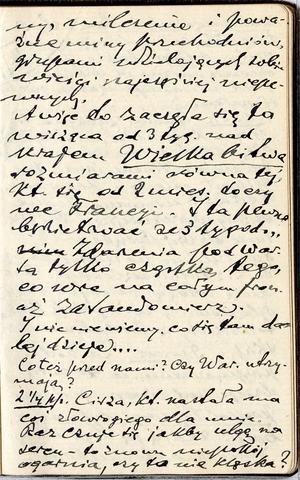 ny, milczenie i powa-
żne miny przechodniów,
grupami udzielających sobie
wieści najczęściej niepe-
wnych.
A więc do zaczęła się ta
wisząca od 3 tyg. nad
krajem Wielka bitwa
rozmiarami równa tej,
kt. się od 2 mies. toczy
we Francji. I ta pewno
będzie trwać ze 3 tygod...
Zdarzenia pod War.
to tylko cząstka tego,
co wre na całym fron.
aż za Sandomierz.
I nic nie wiemy, co się tam da-
lej dzieje....
Co też przed nami? Czy War. utrzy-
mają?
Cisza, kt. nastała ma
coś złowrogiego dla mnie.
Raz czuję się jakby ulgę na
sercu - to znowu niepokój
ogarnia, czy to nie klęska?